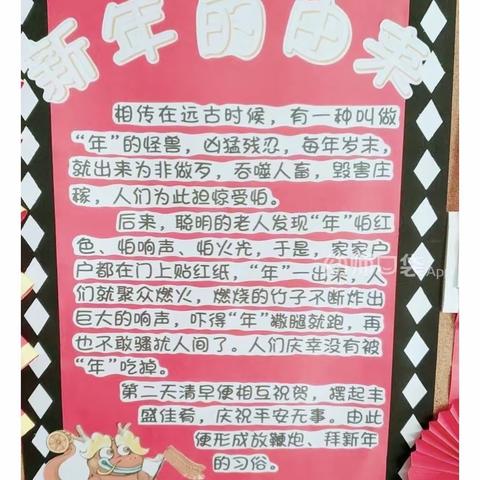 新年的由来
相传在远古时候，有一种叫做
“年”的怪兽，凶猛残忍，每年岁末，
就出来为非做歹，吞噬人畜，毁害庄
稼，人们为此担惊受怕。
后来，聪明的老人发现“年”怕红
色、怕响声、怕火光，于是，家家户
户都在门上贴红纸，“年”一出来，人
们就聚众燃火，燃烧的竹子不断炸出
巨大的响声，吓得“年”撒腿就跑，再
也不敢骚扰人间了。人们庆幸没有被
“年”吃掉。
第二天清早便相互祝贺，摆起丰
盛佳肴，庆祝平安无事。由此
便形成放鞭炮、拜新年
的习俗。